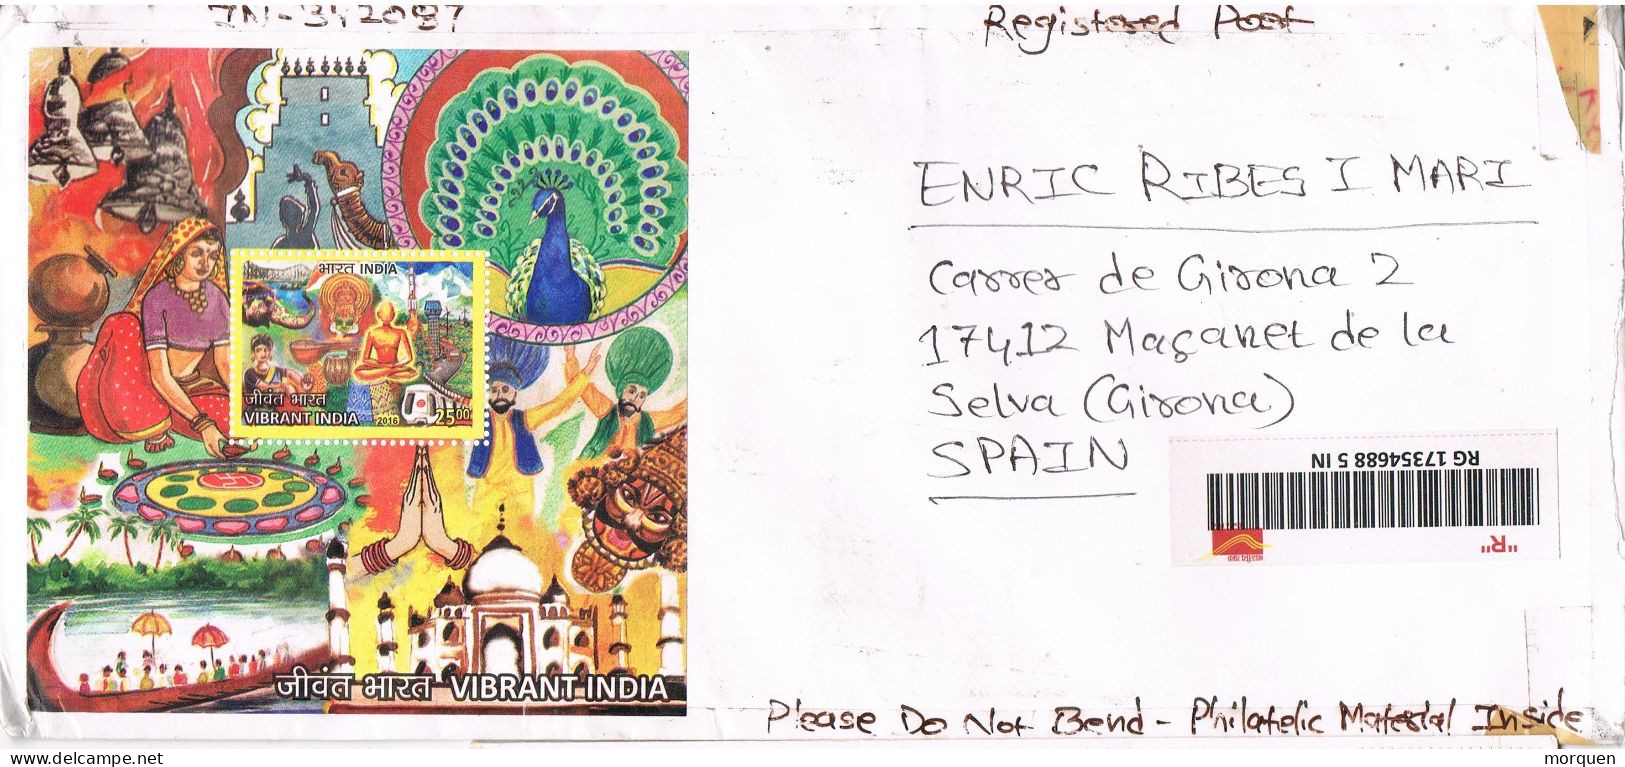 Registered Post
ENRIC RIBES I MARI
Carrer de Girona 2
17412 Maçanet de la
Selva (Girona)
SPAIN
भारत INDIA
जीवंत भारत
VIBRANT INDIA 2016 25.00
RG 17354688 5 IN
"R"
जीवंत भारत VIBRANT INDIA
Please Do Not Bend - Philatelic Material Inside
morquen